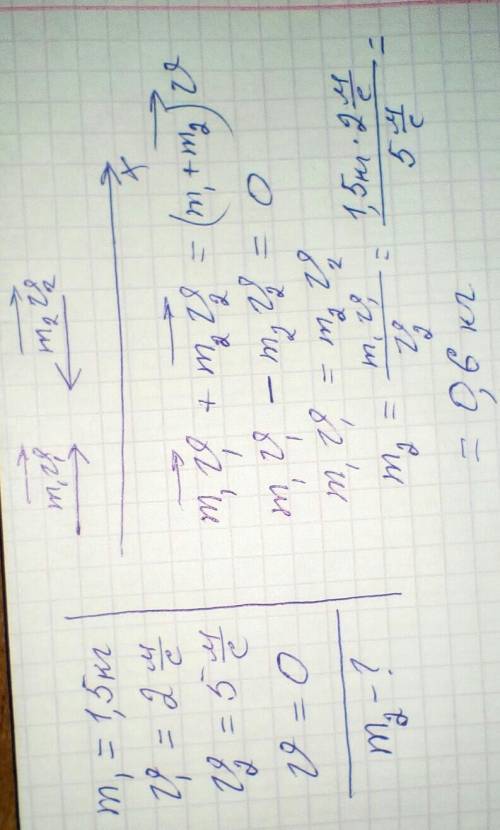 m₁ = 1,5 кг
v₁ = 2 м/с
v₂ = 5 м/с
v = 0
m₂ – ?
m₁v₁ m₂v₂
x
m₁v₁ + m₂v₂ = (m₁ + m₂)v
m₁v₁ – m₂v₂ = 0
m₁v₁ = m₂v₂
m₂ = m₁v₁/v₂ = 1,5 кг · 2 м/с / 5 м/с =
= 0,6 кг